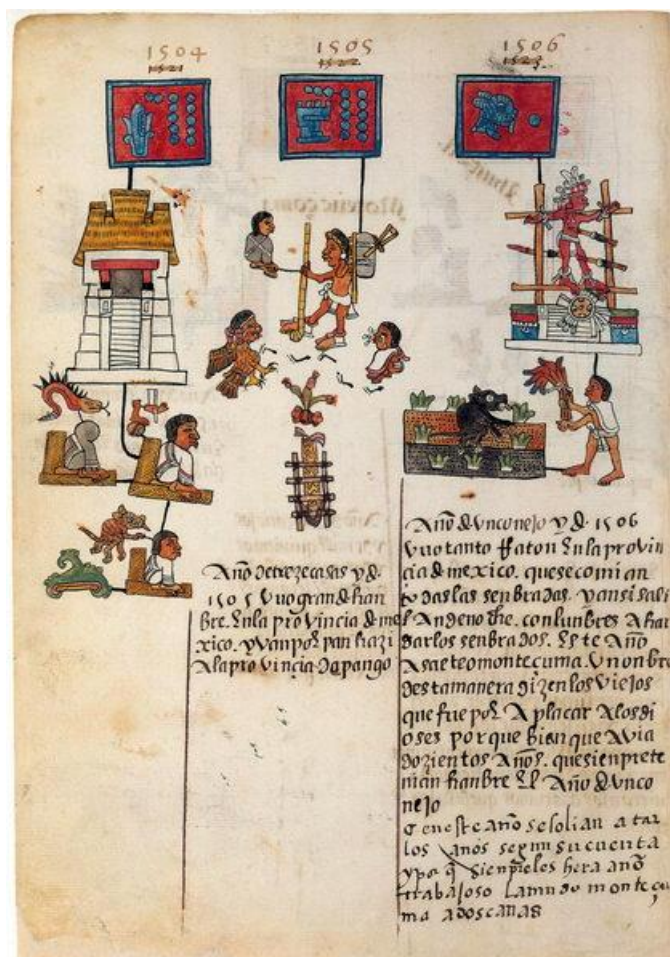 1504
1521
1505
1522
1506
1523
Motenc çoma
Año de treze casas y d.
1505 vuo gran de han
bre. En la provincia de me
xico. y van por pan hazi
a la provincia de pango
Año de vn conejo y d. 1506
vuo tanto Raton en la provin
cia de mexico. que se comian
todas las senbradas. y ansi sali
an de noche. con lunbres a guar
dar los senbrados. Este Año
Asaeteo monteçuma. vn onbre
desta manera dizen los viejos
que fue por Aplacar a los di
oses porque bian que avia
dozientos Años. que sienpre te
nian hanbre El Año de vn co
nejo
en este año se solian atar
los años segun su cuenta
y por q sienpre les hera año
trabajoso la mudo monteçu
ma a dos cañas